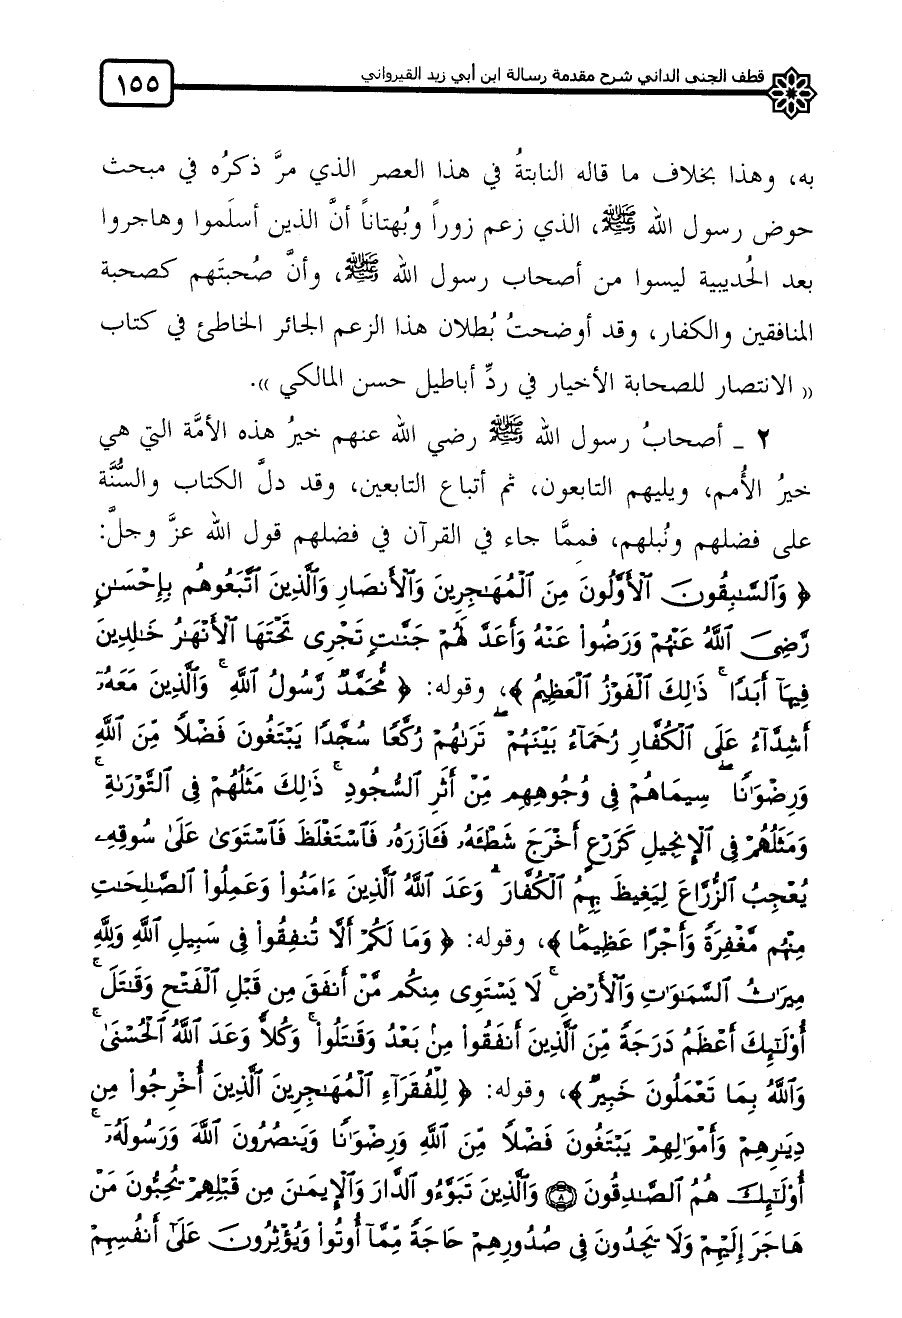 قطف الجنى الداني شرح مقدمة رسالة ابن أبي زيد القيرواني
١٥٥
به، وهذا بخلاف ما قاله النابتةُ في هذا العصر الذي مرَّ ذكرُه في مبحث
حوض رسول الله ﷺ، الذي زعم زوراً وبُهتاناً أنَّ الذين أسلَموا وهاجروا
بعد الحُديبية ليسوا من أصحاب رسول الله ﷺ، وأنَّ صُحبتَهم كصحبة
المنافقين والكفار، وقد أوضحتُ بُطلان هذا الزعم الجائر الخاطئ في كتاب
(( الانتصار للصحابة الأخيار في ردِّ أباطيل حسن المالكي )).
٢ ـ أصحابُ رسول الله ﷺ رضي الله عنهم خيرُ هذه الأمَّة التي هي
خيرُ الأُمم، ويليهم التابعون، ثم أتباع التابعين، وقد دلَّ الكتاب والسُّنَّة
على فضلهم ونُبلهم، فممَّا جاء في القرآن في فضلهم قول الله عزَّ وجلَّ:
﴿ وَٱلسَّـٰبِقُونَ ٱلْأَوَّلُونَ مِنَ ٱلْمُهَـٰجِرِينَ وَٱلْأَنصَارِ وَٱلَّذِينَ ٱتَّبَعُوهُم بِإِحْسَـٰنٍ
رَّضِىَ ٱللَّهُ عَنْهُمْ وَرَضُوا۟ عَنْهُ وَأَعَدَّ لَهُمْ جَنَّـٰتٍ تَجْرِى تَحْتَهَا ٱلْأَنْهَـٰرُ خَـٰلِدِينَ
فِيهَآ أَبَدًا ۚ ذَٰلِكَ ٱلْفَوْزُ ٱلْعَظِيمُ ﴾، وقوله: ﴿ مُّحَمَّدٌ رَّسُولُ ٱللَّهِ ۚ وَٱلَّذِينَ مَعَهُۥٓ
أَشِدَّآءُ عَلَى ٱلْكُفَّارِ رُحَمَآءُ بَيْنَهُمْ ۖ تَرَىٰهُمْ رُكَّعًا سُجَّدًا يَبْتَغُونَ فَضْلًا مِّنَ ٱللَّهِ
وَرِضْوَٰنًا ۖ سِيمَاهُمْ فِى وُجُوهِهِم مِّنْ أَثَرِ ٱلسُّجُودِ ۚ ذَٰلِكَ مَثَلُهُمْ فِى ٱلتَّوْرَىٰةِ ۚ
وَمَثَلُهُمْ فِى ٱلْإِنجِيلِ كَزَرْعٍ أَخْرَجَ شَطْـَٔهُۥ فَـَٔازَرَهُۥ فَٱسْتَغْلَظَ فَٱسْتَوَىٰ عَلَىٰ سُوقِهِۦ
يُعْجِبُ ٱلزُّرَّاعَ لِيَغِيظَ بِهِمُ ٱلْكُفَّارَ ۗ وَعَدَ ٱللَّهُ ٱلَّذِينَ ءَامَنُوا۟ وَعَمِلُوا۟ ٱلصَّـٰلِحَـٰتِ
مِنْهُم مَّغْفِرَةً وَأَجْرًا عَظِيمًۢا ﴾، وقوله: ﴿ وَمَا لَكُمْ أَلَّا تُنفِقُوا۟ فِى سَبِيلِ ٱللَّهِ وَلِلَّهِ
مِيرَٰثُ ٱلسَّمَـٰوَٰتِ وَٱلْأَرْضِ ۚ لَا يَسْتَوِى مِنكُم مَّنْ أَنفَقَ مِن قَبْلِ ٱلْفَتْحِ وَقَـٰتَلَ ۚ
أُو۟لَـٰٓئِكَ أَعْظَمُ دَرَجَةً مِّنَ ٱلَّذِينَ أَنفَقُوا۟ مِنۢ بَعْدُ وَقَـٰتَلُوا۟ ۚ وَكُلًّا وَعَدَ ٱللَّهُ ٱلْحُسْنَىٰ ۚ
وَٱللَّهُ بِمَا تَعْمَلُونَ خَبِيرٌ ﴾، وقوله: ﴿ لِلْفُقَرَآءِ ٱلْمُهَـٰجِرِينَ ٱلَّذِينَ أُخْرِجُوا۟ مِن
دِيَـٰرِهِمْ وَأَمْوَٰلِهِمْ يَبْتَغُونَ فَضْلًا مِّنَ ٱللَّهِ وَرِضْوَٰنًا وَيَنصُرُونَ ٱللَّهَ وَرَسُولَهُۥٓ ۚ
أُو۟لَـٰٓئِكَ هُمُ ٱلصَّـٰدِقُونَ ۝٨ وَٱلَّذِينَ تَبَوَّءُو ٱلدَّارَ وَٱلْإِيمَـٰنَ مِن قَبْلِهِمْ يُحِبُّونَ مَنْ
هَاجَرَ إِلَيْهِمْ وَلَا يَجِدُونَ فِى صُدُورِهِمْ حَاجَةً مِّمَّآ أُوتُوا۟ وَيُؤْثِرُونَ عَلَىٰٓ أَنفُسِهِمْ